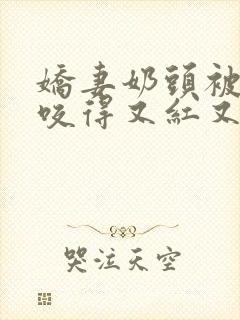 嬌妻奶頭被
咬得又紅又
哭泣天空